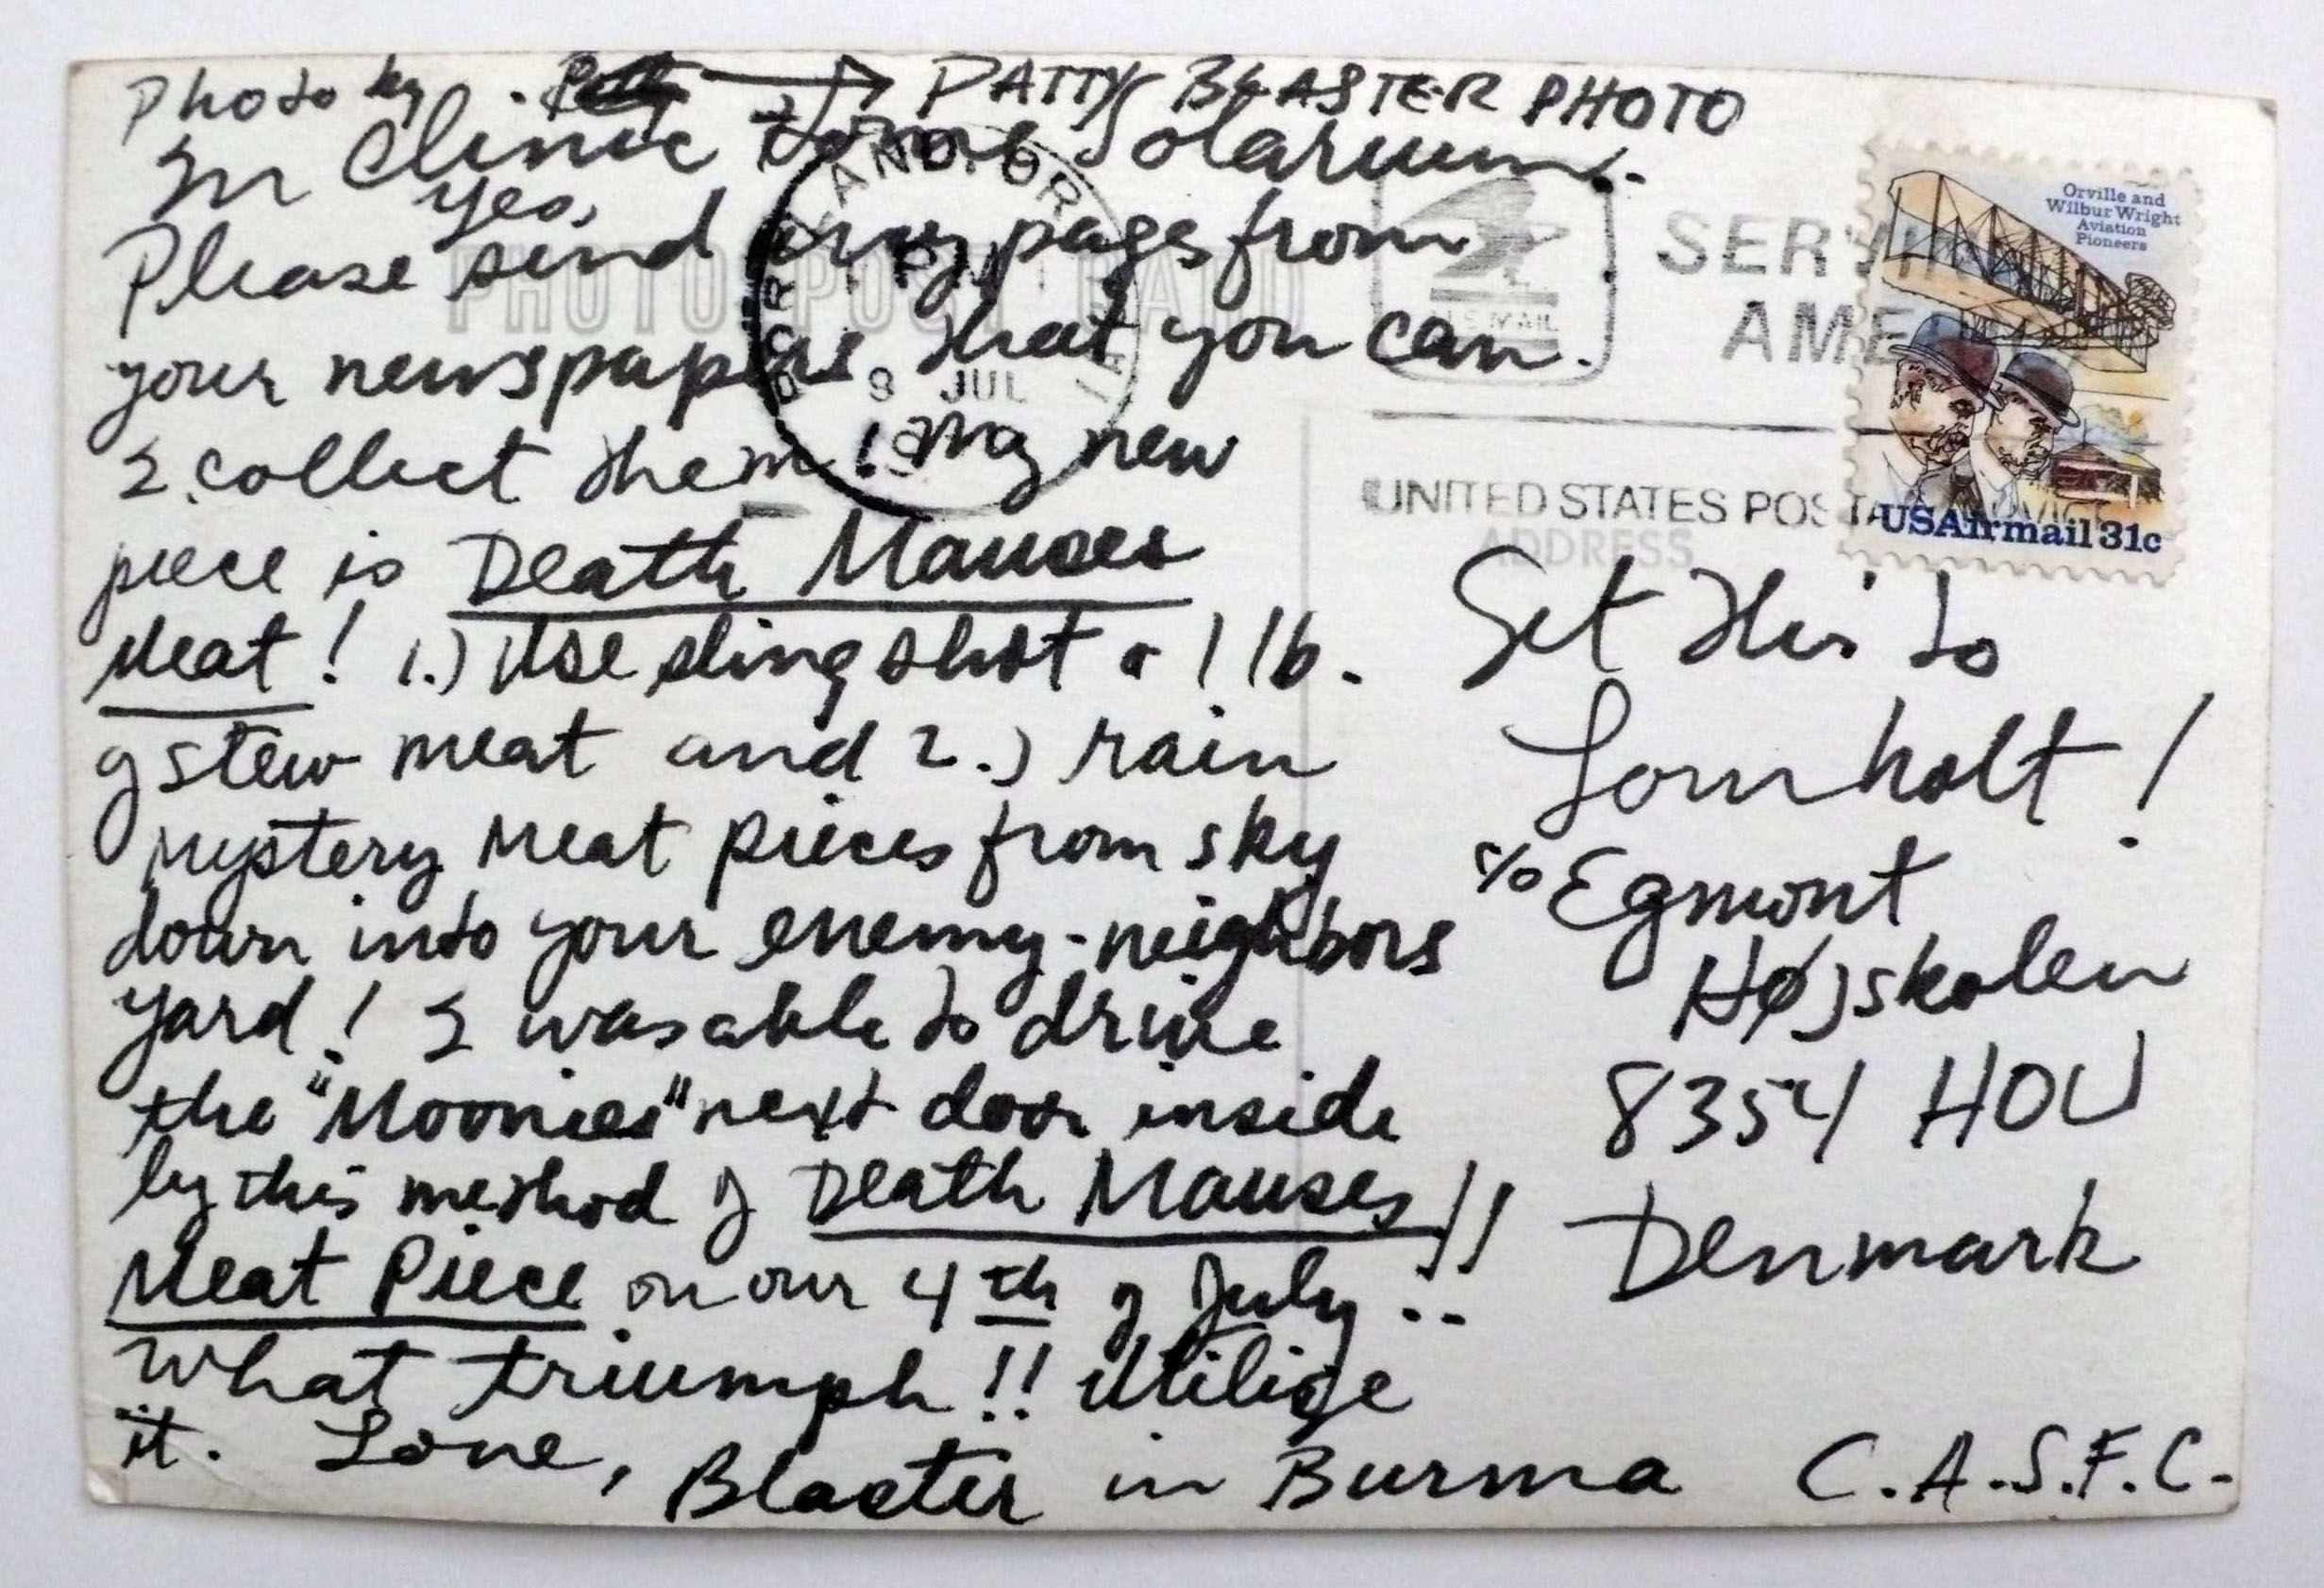 Photo by . Patty → PATTY BLASTER PHOTO
In Clinic Zone Solarium.
Yes,
Please send any pages from
your newspapers that you can.
I collect them! My new
piece is Death Mauses
Meat! 1.) Use slingshot & 1 lb.
of stew meat and 2.) rain
mystery meat pieces from sky
down into your enemy-neighbors
yard! I was able to drive
the "Moonies" next door inside
by this method of Death Mauses
Meat Piece on our 4th of July!!
What triumph!! Utilize
it. Love, Blaster in Burma C.A.S.F.C.
PHOTO POST CARD
PORTLAND, OR
PM
9 JUL
19
U.S. MAIL
SERVI
AME
UNITED STATES POSTA
ADDRESS
Orville and
Wilbur Wright
Aviation
Pioneers
USAirmail 31c
Get This to
Lomholt!
c/o Egmont
Højskolen
8354 HOU
Denmark